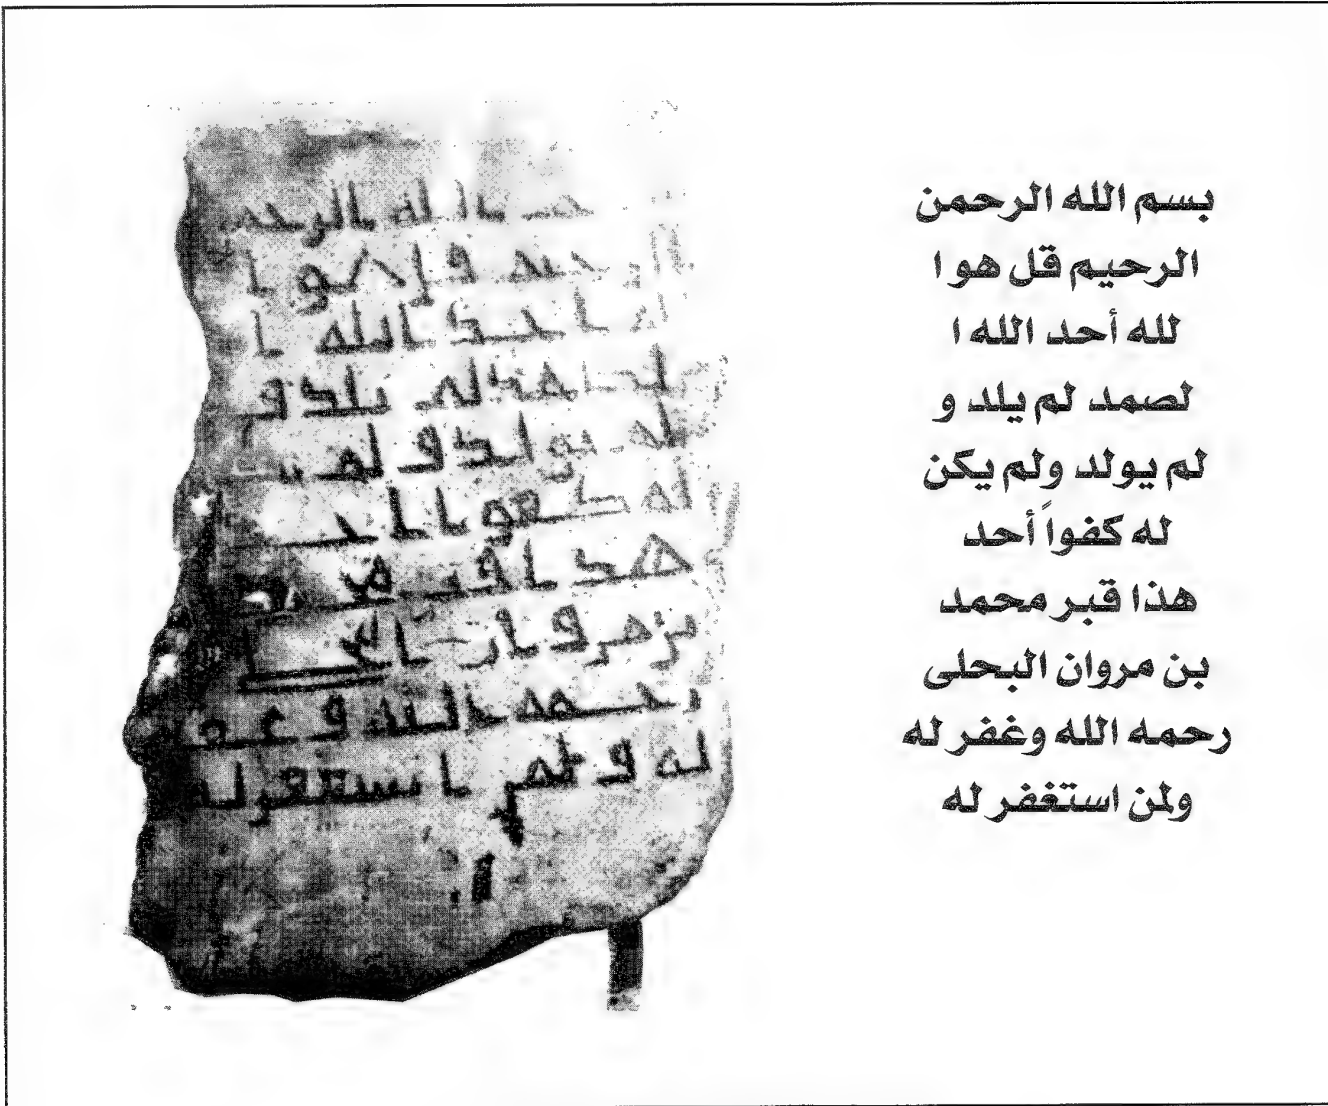 بسم الله الرحمن
الرحيم قل هو ا
لله أحد الله ا
لصمد لم يلد و
لم يولد ولم يكن
له كفواً أحد
هذا قبر محمد
بن مروان البحلى
رحمه الله وغفر له
ولمن استغفر له